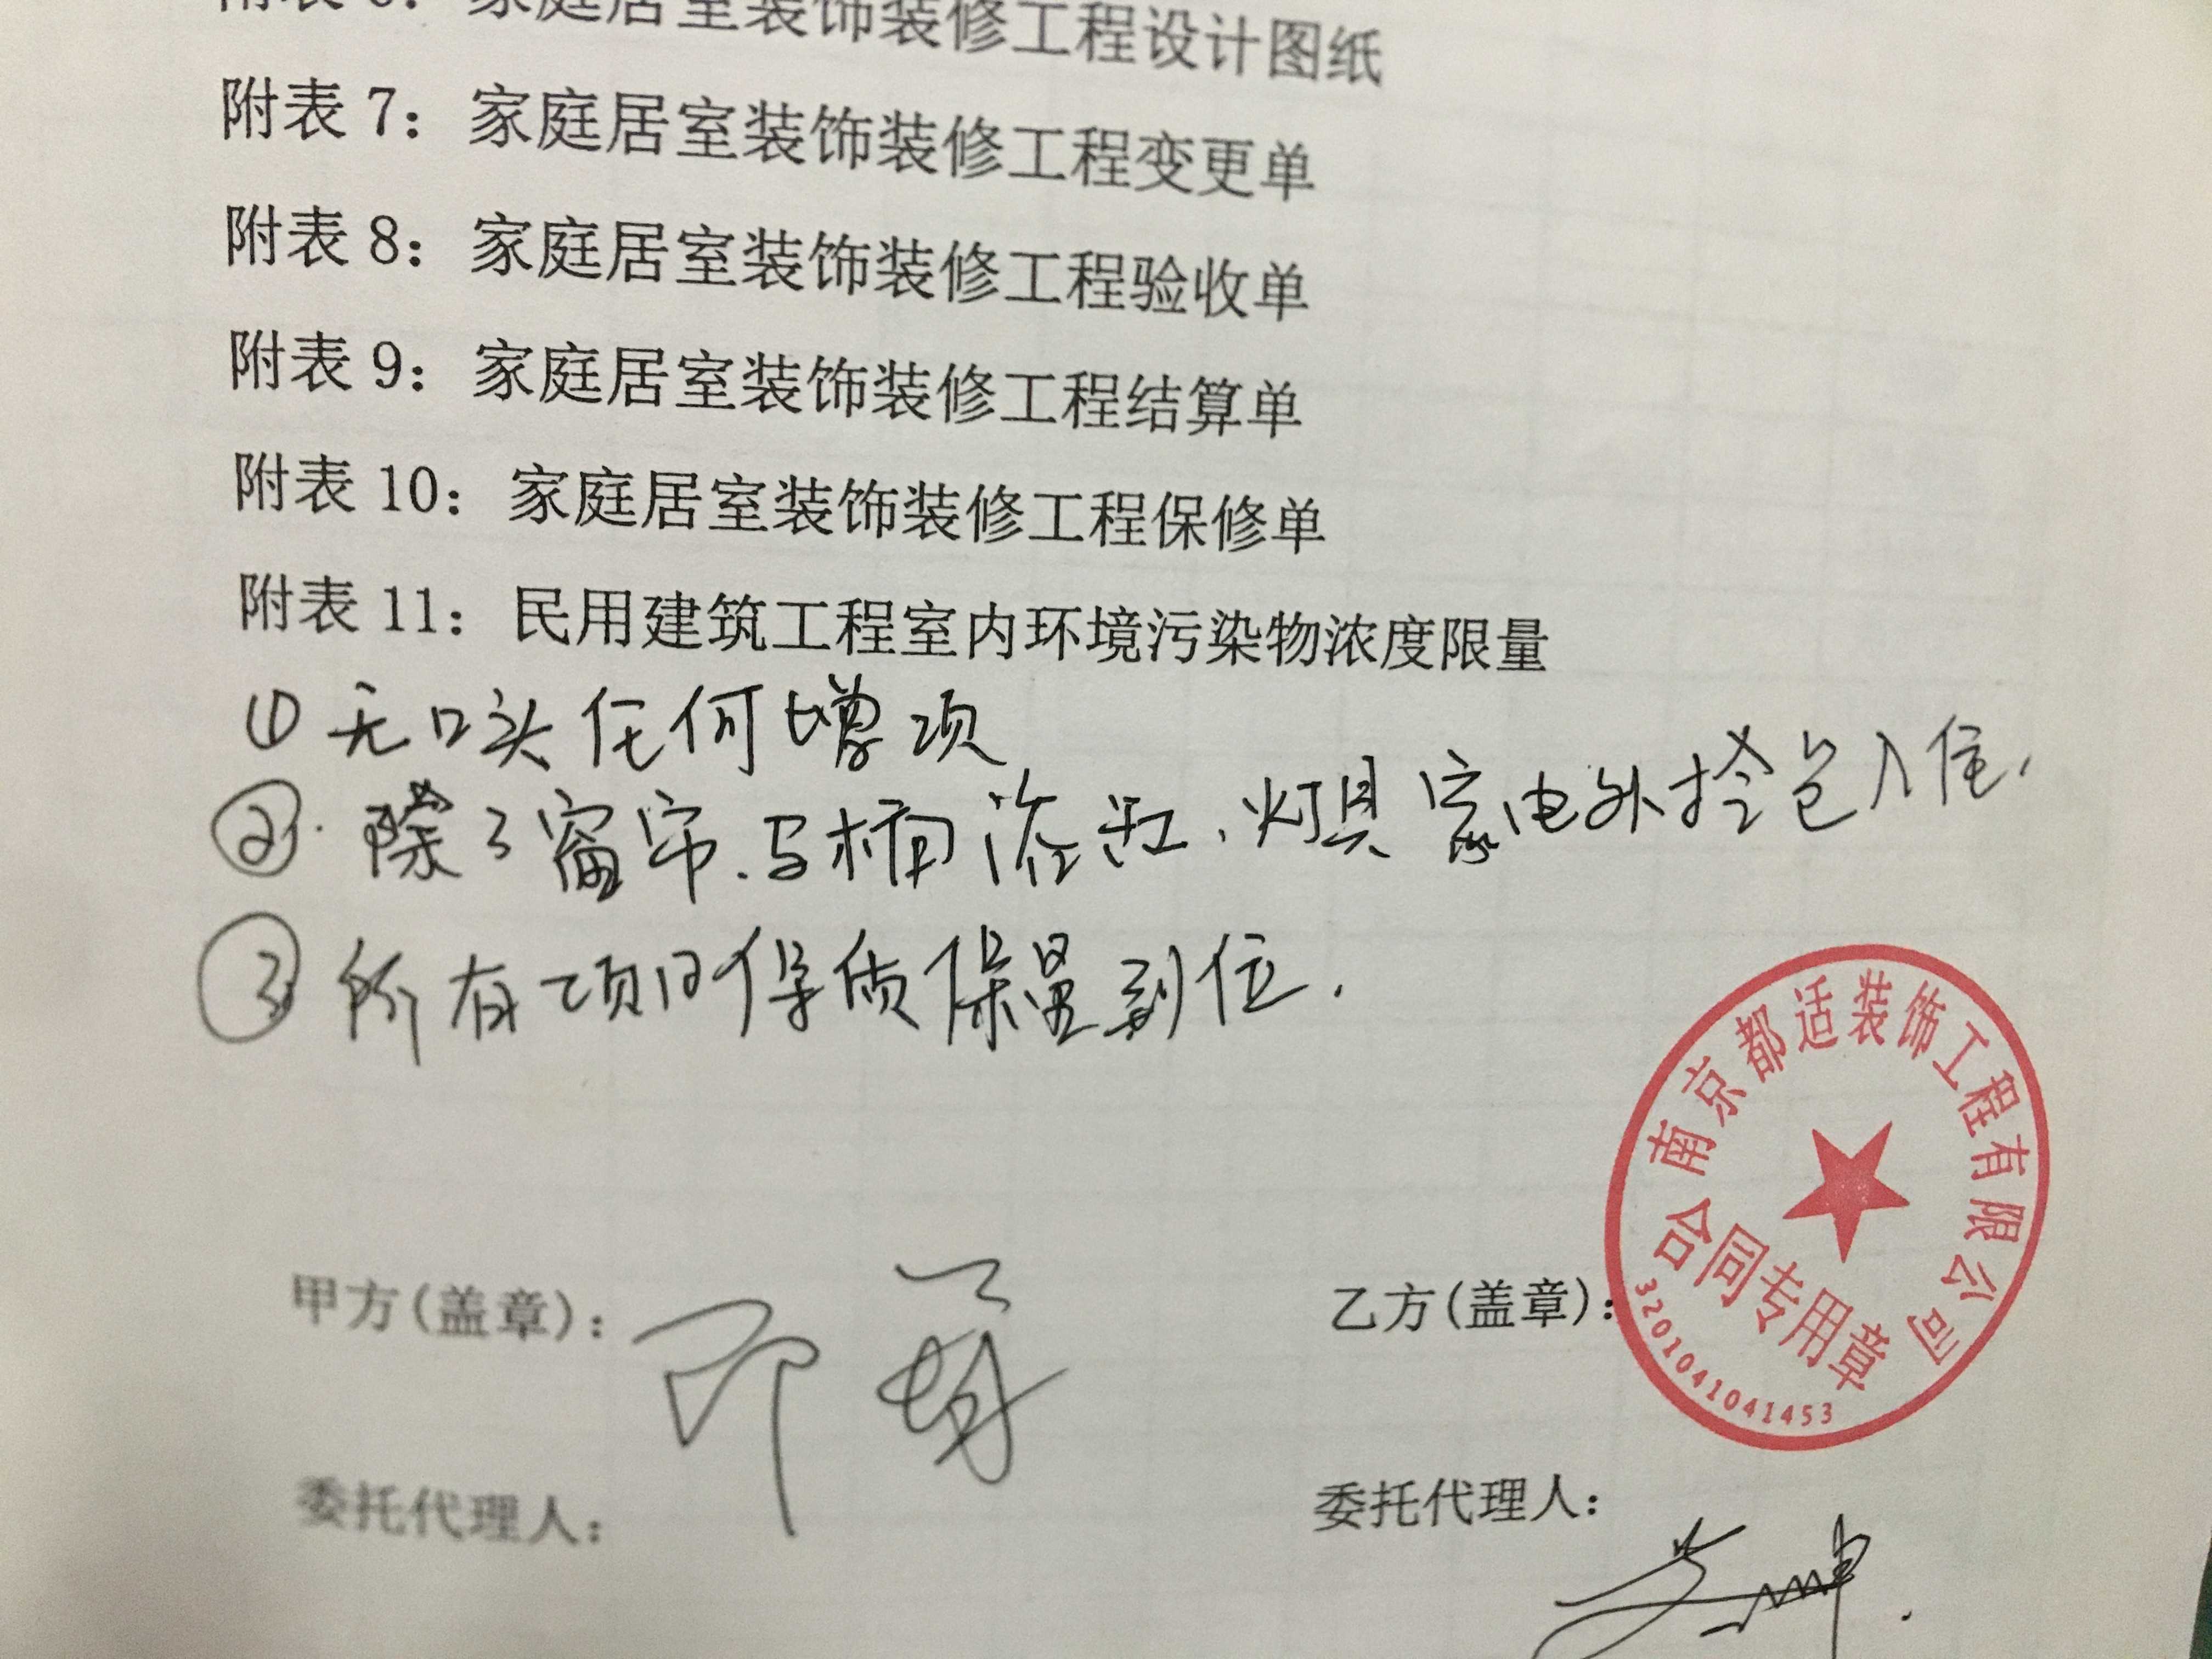 附表 6：家庭居室装饰装修工程设计图纸
附表 7：家庭居室装饰装修工程变更单
附表 8：家庭居室装饰装修工程验收单
附表 9：家庭居室装饰装修工程结算单
附表 10：家庭居室装饰装修工程保修单
附表 11：民用建筑工程室内环境污染物浓度限量
① 无口头任何增项
②. 除了窗帘.马桶浴缸.灯具家电外拎包入住.
③ 所有项目保质保量到位.
甲方(盖章)：
乙方(盖章)：
南京都适装饰工程有限公司
合同专用章
3201041041453
委托代理人：
委托代理人：